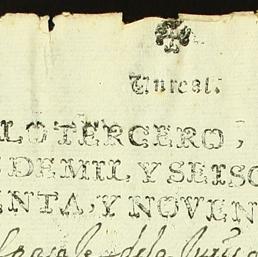 Un real.
LO TERCERO,
DE MIL Y SEISC
ENTA, Y NOVEN